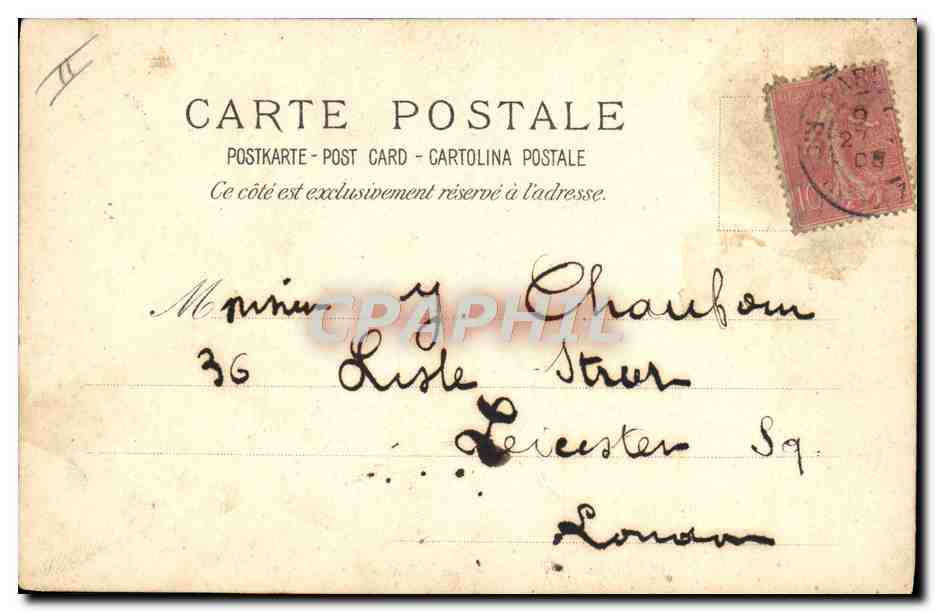 II
CARTE POSTALE
POSTKARTE - POST CARD - CARTOLINA POSTALE
Ce côté est exclusivement réservé à l'adresse.
10
Monsieur Y.
CPAPHIL
36 Lisle Street
Leicester Sq.
London